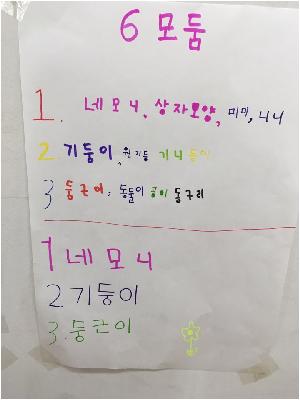 6모둠
1. 네모니, 상자모양, 미미, 니니
2. 기둥이, 원기둥 기니둥이
3 둥근이, 동둘이 공이 동구리
1 네모니
2. 기둥이
3. 둥근이